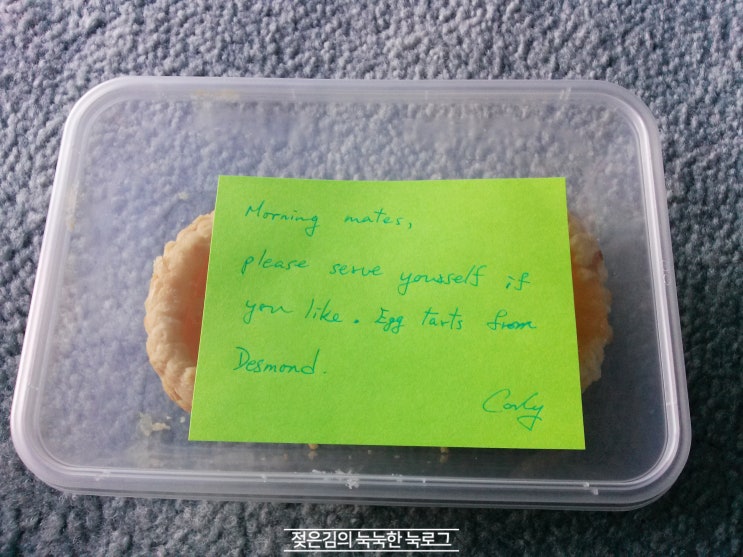 Morning mates,
please serve yourself if
you like. Egg tarts from
Desmond.
Carly
젖은김의 눅눅한 눅로그